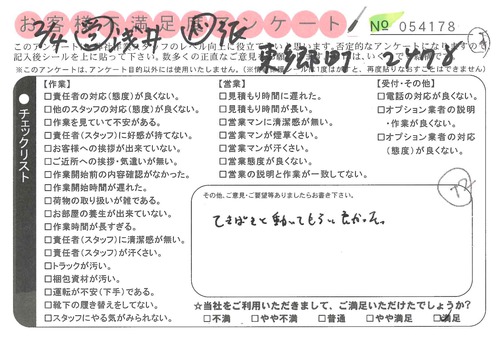 お客様不満足度アンケート
№ 054178
2/4 浅井 東郷町
記入後シールを上に貼って下さい。
※このアンケートは、アンケート目的以外には使用いたしません。
チェックリスト
【作業】
□責任者の対応(態度)が良くない。
□他のスタッフの対応(態度)が良くない。
□作業を見ていて不安がある。
□責任者(スタッフ)に好感が持てない。
□お客様への挨拶が出来ていない。
□ご近所への挨拶・気遣いが無い。
□作業開始前の内容確認がなかった。
□作業開始時間が遅れた。
□荷物の取り扱いが雑である。
□お部屋の養生が出来ていない。
□作業時間が長すぎる。
□責任者(スタッフ)に清潔感が無い。
□責任者(スタッフ)が汗くさい。
□トラックが汚い。
□梱包資材が汚い。
□運転が不安(下手)である。
□靴下の履き替えをしてない。
□スタッフにやる気がみられない。
【営業】
□見積もり時間に遅れた。
□見積もり時間が長い。
□営業マンに清潔感が無い。
□営業マンが煙草くさい。
□営業マンが汗くさい。
□営業態度が良くない。
□営業の説明と作業が一致してない。
【受付・その他】
□電話の対応が良くない。
□オプション業者の説明
・作業が良くない。
□オプション業者の対応
(態度)が良くない。
その他、ご意見・ご要望等ありましたらお書き下さい。
てきぱきと動いてもらって良かった。
☆当社をご利用いただきまして、ご満足いただけたでしょうか?
□不満 □やや不満 □普通 □やや満足 ☑満足